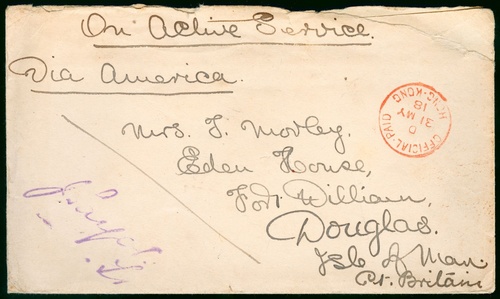 On Active Service.
Via America.
OFFICIAL PAID
D
31 MY
18
HONG-KONG
Mrs. T. Morley,
Eden House,
Fort William,
Douglas.
Isle of Man.
Gt. Britain